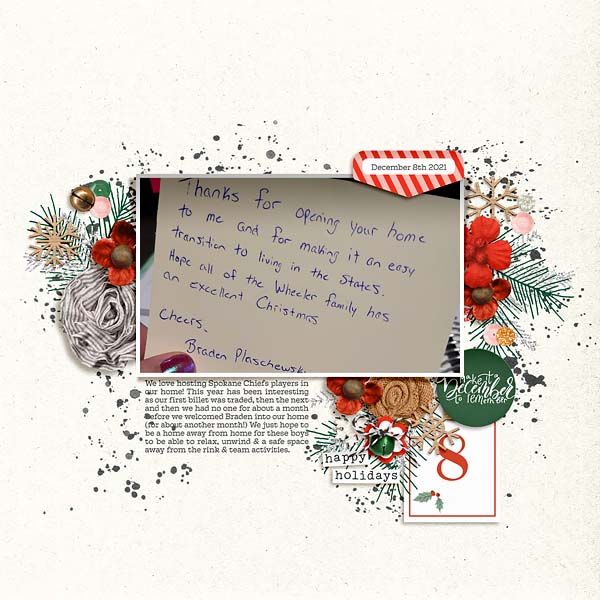 December 8th 2021
Thanks for opening your home
to me and for making it an easy
transition to living in the States.
Hope all of the Wheeler family has
an excellent Christmas
Cheers,
Braden Plaschewski
We love hosting Spokane Chiefs players in
our home! This year has been interesting
as our first billet was traded, then the next
and then we had no one for about a month
before we welcomed Braden into our home
(for about another month!) We just hope to
be a home away from home for these boys
to be able to relax, unwind & a safe space
away from the rink & team activities.
make it a
December
to remember
8
happy
holidays